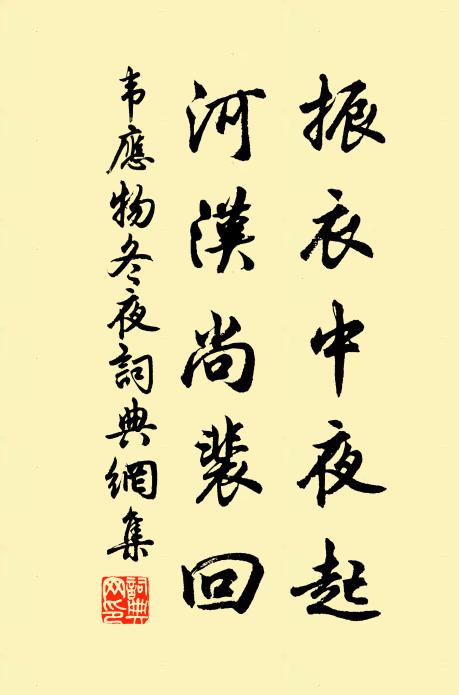 振衣中夜起
河漢尚裴回
韦應物冬夜詞典網集
詞典
网印